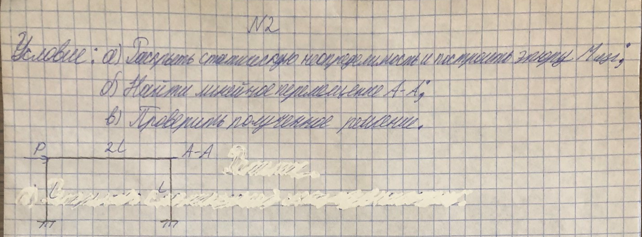 N2
Условие: а) Раскрыть статическую неопределимость и построить эпюру Mизг;
б) Найти линейное перемещение A-A;
в) Проверить полученное решение.
P 2l A-A
l l